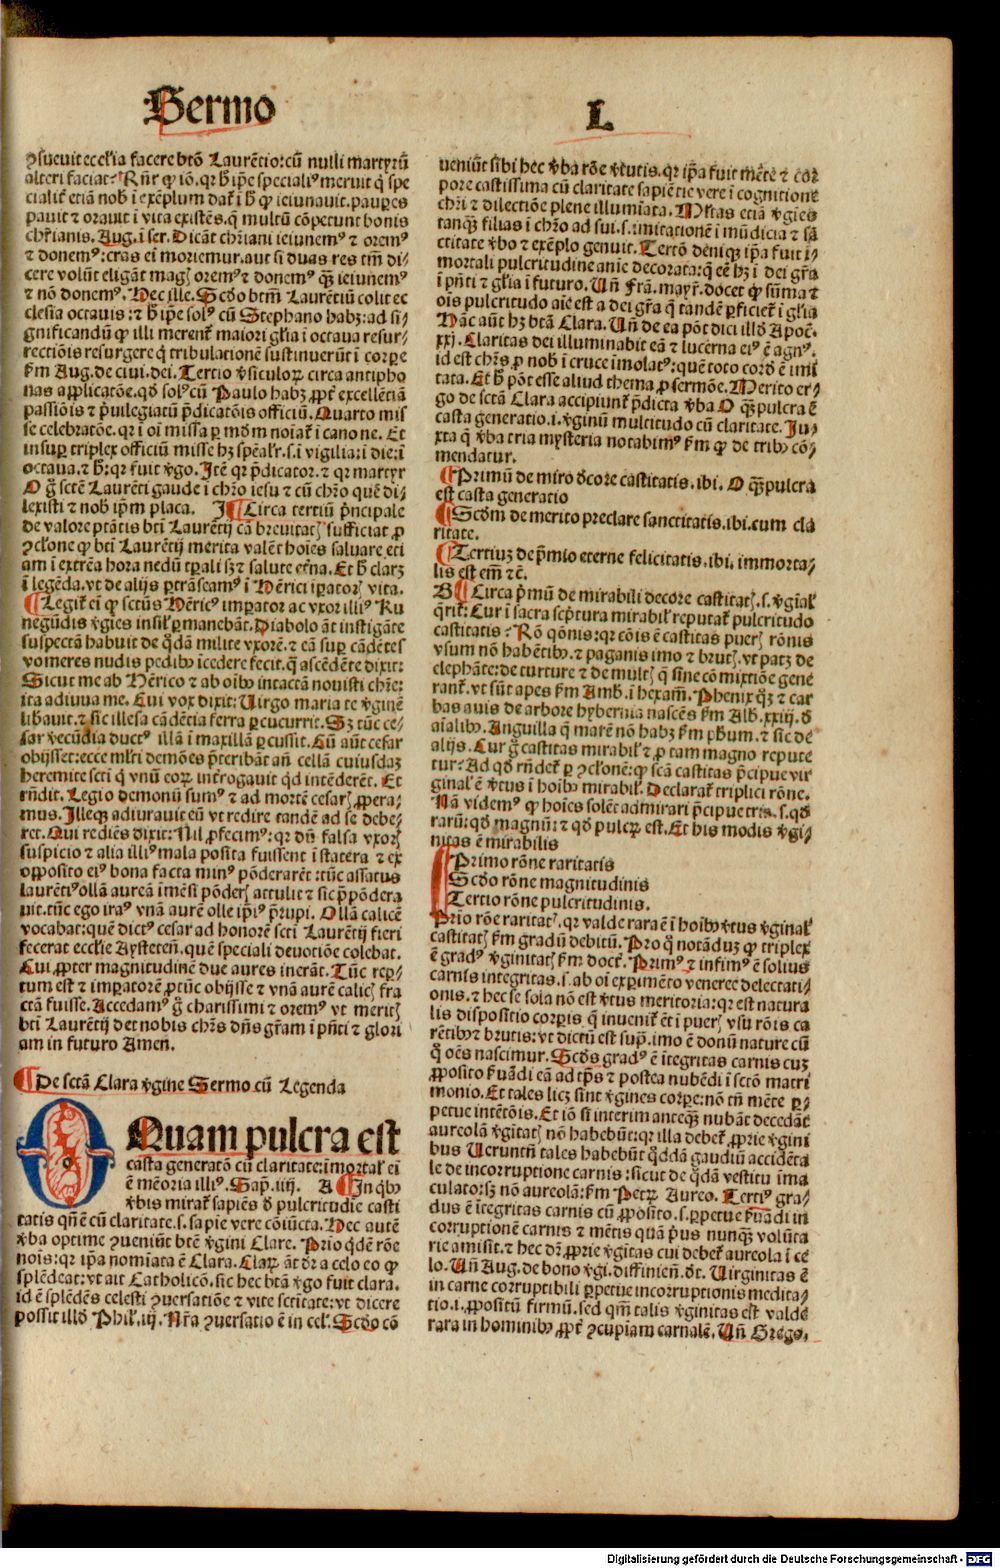 Sermo L
ꝯsueuit ecclȋa facere btõ Laurẽtio: cũ nulli martyrũ
alteri faciat? Rñr ꝙ iõ. qr h̃ ip̃e speciali⁹ meruit q̃ spe
cialiť etiã nob̃ i exẽplum dať i h̃ ꝙ ieiunauit. paupes
pauit ⁊ orauit i vita existẽs. q̃ multũ cõpetunt bonis
chr̃ianis. Aug. i ser. Dicãt chr̃iani ieiunem⁹ ⁊ orem⁹
⁊ donem⁹: cras ei moriemur. aut si duas res tm̃ di⸗
cere volũt eligãt magꝭ orem⁹ ⁊ donem⁹ qȝ̃ ieiunem⁹
⁊ nõ donem⁹. Hec ille. Scd̃o btm̃ Laurẽtiũ colit ec
clesia octauis: ⁊ h̃ ip̃e sol⁹ cũ Stephano habȝ: ad si⸗
gnificandũ ꝙ illi merenť maiori gl̃ia i octaua resur⸗
rectiõis resurgere q̃ tribulationẽ sustinuerũt i corpe
ẜm Aug. de ciui. dei. Tertio v̾siculoꝝ circa antipho
nas applicatõe. qd̃ sol⁹ cũ Paulo habȝ ꝓpť excellẽtiã
passiõis ⁊ p̃uilegiatũ p̃dicatõis officiũ. Quarto mis
se celebratõe. qr i oi missa ꝑ mõm noiať i canone. Et
insuꝑ triplex officiũ misse hȝ spẽaľr. s. i vigilia: i die: i
octaua. ⁊ h̃: qr fuit v̾go. Itẽ qr p̃dicator. ⁊ qr martyr
O g̃ sctẽ Laurẽti gaude i chr̃o iesu ⁊ cũ chr̃o quẽ di⸗
lexisti ⁊ nob̃ ip̃m placa. I ¶ Circa tertiũ p̃ncipale
de valore ptãtis bti Laurẽtij cã breuitatꝭ sufficiat ꝓ
ꝯclone ꝙ bti Laurẽtij merita valẽt hoĩes saluare. eti
am i extrẽa hora nedũ tꝑali sȝ ⁊ salute etr̃na. Et h̃ clarȝ
i legẽda. vt de alijs ꝑtrãseam⁹ i Hẽrici ipatorꝭ vita.
¶ Legiť ei ꝙ sctũs Hẽric⁹ impator ac vxor illi⁹ Ku
negũdis v̾gies insiľ ꝑmanebãt. Diabolo ãt instigãte
suspectã habuit de q̃dã milite vxorẽ. ⁊ eã suꝑ cãdẽtes
vomeres nudis pedibꝰ icedere fecit. q̃ ascẽdẽte dixit:
Sicut me ab Hẽrico ⁊ ab oibꝰ intactã nouisti chr̃e:
ita adiuua me. Cui vox dixit: Uirgo maria te v̾ginẽ
liƀauit. ⁊ sic illesa cãdẽtia ferra ꝑcucurrit. Sȝ tũc ce⸗
sar v̾ecũdia duct⁹ illã i maxillã ꝑcussit. Cũ aũt cesar
obijsset: ecce ml̃ti demões p̃teribãt añ cellã cuiusdaȝ
heremite scti q̃ vnũ eoꝝ int̾rogauit qd intẽderẽt. Et
rñdit. Legio demonũ sum⁹ ⁊ ad mortẽ cesarꝭ ꝓpera⸗
mus. Illeqȝ adiurauit eũ vt redire tandẽ ad se debe⸗
ret. Qui rediẽs dixit: Nil ꝓfecim⁹: qr dũ falsa vxorꝭ
suspicio ⁊ alia illi⁹ mala posita fuissent i statera ⁊ ex
opposito ei⁹ bona facta min⁹ põderarẽt: tũc assatus
laurẽti⁹ ollã aureã imẽsi põderꝭ attulit ⁊ sic p̃põdera
uit. tũc ego irat⁹ vnã aurẽ olle ip̃i⁹ p̃rupi. Ollã calicẽ
vocabat: quẽ dict⁹ cesar ad honorẽ scti Laurẽtij fieri
fecerat ecclie Aysteteñ. quẽ speciali deuotiõe colebat.
Cui ꝓpter magnitudinẽ due aures inerãt. Tũc reꝑ⸗
tum est ⁊ impatorẽ ꝓtũc obijsse ⁊ vnã aurẽ calicꝭ fra
ctã fuisse. Accedam⁹ g̃ charissimi ⁊ orem⁹ vt meritꝭ
bti Laurẽtij det nobis chr̃s dñs gr̃am i p̃nti ⁊ glori
am in futuro Amen.
¶ De sctã Clara v̾gine Sermo cũ Legenda
O Quam pulcra est
casta generatõ cũ claritate: ĩmortaľ ei
ẽ mẽoria illi⁹. Sap. iiij. A ¶ In qibꝰ
v̾bis miraľ sapiẽs d̾ pulcritudĩe casti
tatis qñ ẽ cũ claritate. s. sapie vere cõiũcta. Hec autẽ
v̾ba optime ꝯueniũt btẽ v̾gini Clare. Prĩo qdẽ rõe
nois: qr ip̃a nomĩata ẽ Clara. Claꝝ ãt dr̃ a celo eo ꝙ
splẽdeat: vt ait Catholicõ. sic hec btã v̾go fuit clara.
id ẽ splẽdẽs celesti ꝯuersatiõe ⁊ vite sctitate: vt dicere
possit illd̾ Phil. iij. Nr̃a ꝯuersatio ẽ in cel̾. Scd̃o cõ
ueniũt sibi hec v̾ba rõe v̾tutis. qr ip̃a fuit mẽte ⁊ cor
pore castissima cũ claritate sapiẽtie vere i cognitione
chr̃i ⁊ dilectiõe plene illumĩata. Ml̃tas etiã v̾gies
tanqȝ̃ filias i chr̃o ad sui. s. imitationẽ i mũdicia ⁊ sã
ctitate v̾bo ⁊ exẽplo genuit. Tertõ deniqȝ ip̃a fuit ĩ⸗
mortali pulcritudine anie decorata: q̃ cẽ hȝ i dei gr̃a
i p̃nti ⁊ gl̃ia i futuro. Uñ Frã. mayr̃. docet ꝙ sũma ⁊
ois pulcritudo aĩe est a dei gr̃a q̃ tandẽ ꝑficieť i gl̃ia
Hãc aũt hȝ btã Clara. Uñ de ea põt dici illd̾ Apoc̃.
xxj. Claritas dei illuminabit eã ⁊ lucerna ei⁹ ẽ agn⁹.
id est chr̃s ꝓ nob̃ i cruce ĩmolat⁹: quẽ toto cord̾ ẽ imi
tata. Et h̃ põt esse aliud thema ꝓ sermõe. Merito er⸗
go de sctã Clara accipiunť p̃dicta v̾ba O qȝ̃ pulcra ẽ
casta generatio. i. v̾ginũ multitudo cũ claritate. Ju⸗
xta q̃ v̾ba tria mysteria notabim⁹ ẜm ꝙ de tribꝰ cõ⸗
mendatur.
¶ Primũ de miro d̾core castitatis. ibi. O qȝ̃ pulcra
est casta generatio
¶ Scdm de merito preclare sanctitatis. ibi. cum cla
ritate.
¶ Tertiuȝ de p̃mio eterne felicitatis. ibi. immorta⸗
lis est em̃ ⁊c̃.
B ¶ Circa p̃mũ de mirabili decore castitatꝭ. s. v̾gĩaľ
q̃riť: Cur i sacra scp̃tura mirabiľ reputať pulcritudo
castitatis? Rõ qõnis: qr cõis ẽ castitas puerꝭ rõnis
vsum nõ habẽtibꝰ. ⁊ paganis imo ⁊ brutꝭ. vt patȝ de
elephãte: de turture ⁊ de multꝭ q̃ sine cõmixtiõe gene
ranť. vt sũt apes ẜm Amb. i hexam̃. Phenix qȝ ⁊ car
bas auis de arbore hybernia nascẽs ẜm Alb. xxiij. d̾
aĩalibꝰ. Anguilla q̃ marẽ nõ habȝ ẜm ph̃um. ⁊ sic de
alijs. Cur g̃ castitas mirabiľ ⁊ ꝓ tam magno repute
tur? Ad qd̾ rñdeť ꝑ ꝯclonẽ: ꝙ scã castitas p̃cipue vir
ginaľ ẽ v̾tus i hoibꝰ mirabiľ. Declarať triplici rõne.
Nã videm⁹ ꝙ hoĩes solẽt admirari p̃cipue tria. s. qd̾
rarũ: qd̾ magnũ: ⁊ qd̾ pulcꝝ est. Et his modis v̾gi⸗
nitas ẽ mirabilis
Primo rõne raritatis
Scd̾o rõne magnitudinis
Tertio rõne pulcritudinis.
Prĩo rõe raritatꝭ. qr valde rara ẽ i hoibꝰ v̾tus v̾ginaľ
castitatꝭ ẜm gradũ debitũ. Pro q̃ notãduȝ ꝙ triplex
ẽ grad⁹ v̾ginitatꝭ ẜm doct̾. Prim⁹ ⁊ infim⁹ ẽ solius
carnis integritas. s. ab oi exꝑimẽto veneree delectati⸗
onis. ⁊ hec se sola nõ est v̾tus meritoria: qr est natura
lis dispositio corpis q̃ inueniť ẽt i puerꝭ vsu rõis ca
rẽtibꝰ ⁊ brutis: vt dictũ est sup̃. imo ẽ donũ nature cũ
q̃ oẽs nascimur. Scd̾s grad⁹ ẽ ĩtegritas carnis cuȝ
ꝓposito ẜuãdi eã ad tp̃s ⁊ postea nubẽdi i sctõ matri
monio. Et tales licȝ sint v̾gines corpe: nõ tñ mẽte ꝑ⸗
petue intẽtõis. Et iõ si interim anteqȝ̃ nubãt decedãt
aureolã v̾gĩtatꝭ nõ habebũt: qr illa debeť ꝓprie v̾gini
bus Ueruntñ tales habebũt q̃ddã gaudiũ accidẽta
le de incorruptione carnis: sicut de q̃dã vestitu ima
culato: sȝ nõ aureolã: ẜm Petꝝ Aureo. Terti⁹ gra⸗
dus ẽ ĩtegritas carnis cũ ꝓposito. s. ꝑpetue ẜuãdi in
corruptionẽ carnis ⁊ mẽtis quã p̃us nunqȝ̃ volũta
rie amisit. ⁊ hec dr̃ ꝓprie v̾gĩtas cui debeť aureola i ce
lo. Uñ Aug. de bono v̾gi. diffinieñ. d̾t. Uirginitas ẽ
in carne corruptibili ꝑpetue incorruptionis medita⸗
tio. i. ꝓpositũ firmũ. sed qm̃ talis v̾ginitas est valde
rara in hominibꝰ ꝓpť ꝯcupĩam carnalẽ. Uñ Grego.
Digitalisierung gefördert durch die Deutsche Forschungsgemeinschaft - DFG